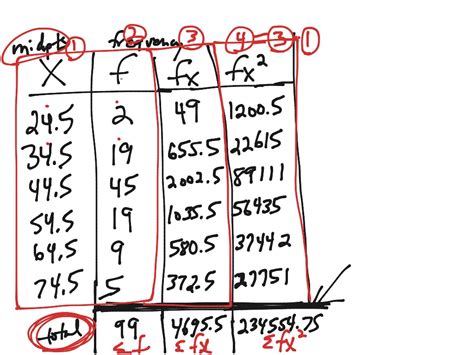 midpts ① frequency ② ③ ④ ③ ①
X f fx fx²
24.5 2 49 1200.5
34.5 19 655.5 22615
44.5 45 2002.5 89111
54.5 19 1035.5 56435
64.5 9 580.5 37442
74.5 5 372.5 27751
total 99 4695.5 234554.75
Σf Σfx Σfx²